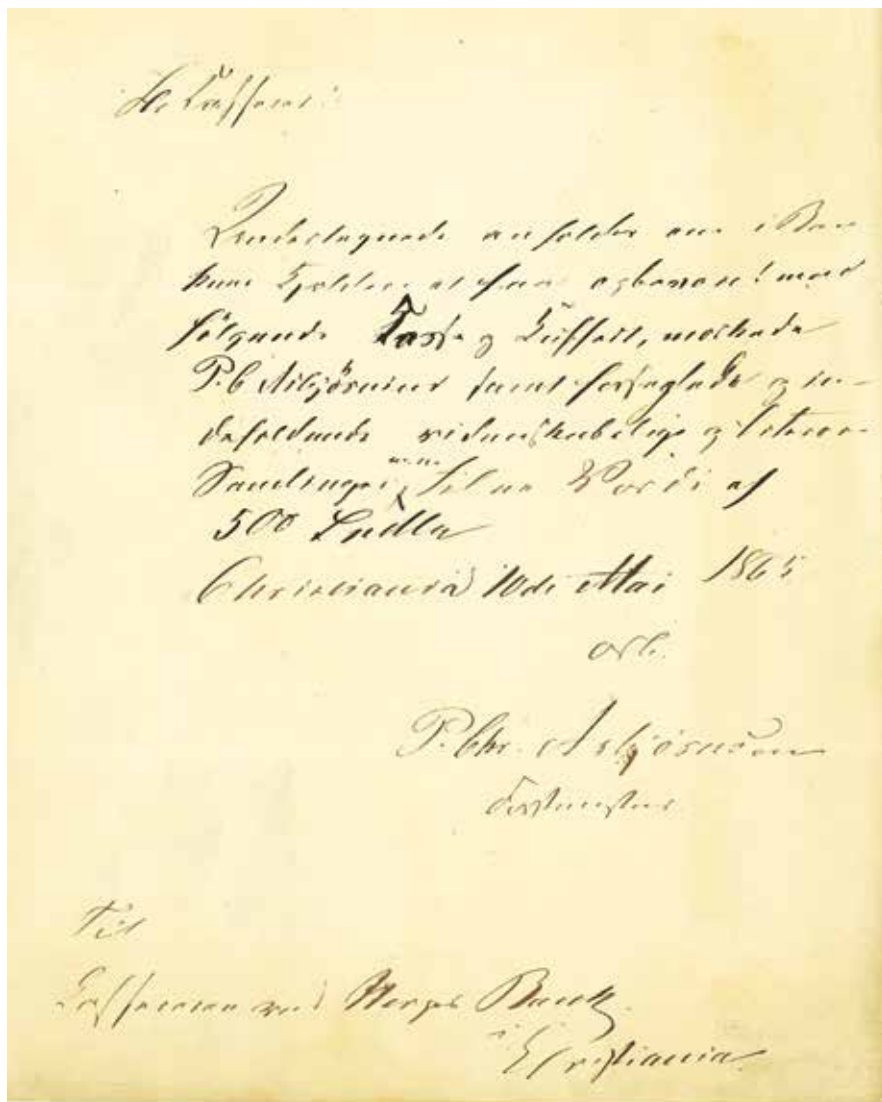 Hr Kasserer!
Undertegnede anholder om i Ban
kens Kjelder at faa med
følgende Kasse og Kuffert, mærkede
P. C Asbjörnsen samt forseglede og in-
deholdende videnskabelige og
Samlinger m.m. til en Værdi af
500
Christiania 10de Mai 1865
ærb.
P. Chr. Asbjörnsen
Forstmester
Til
Kassereren ved Norges Bank
i Christiania